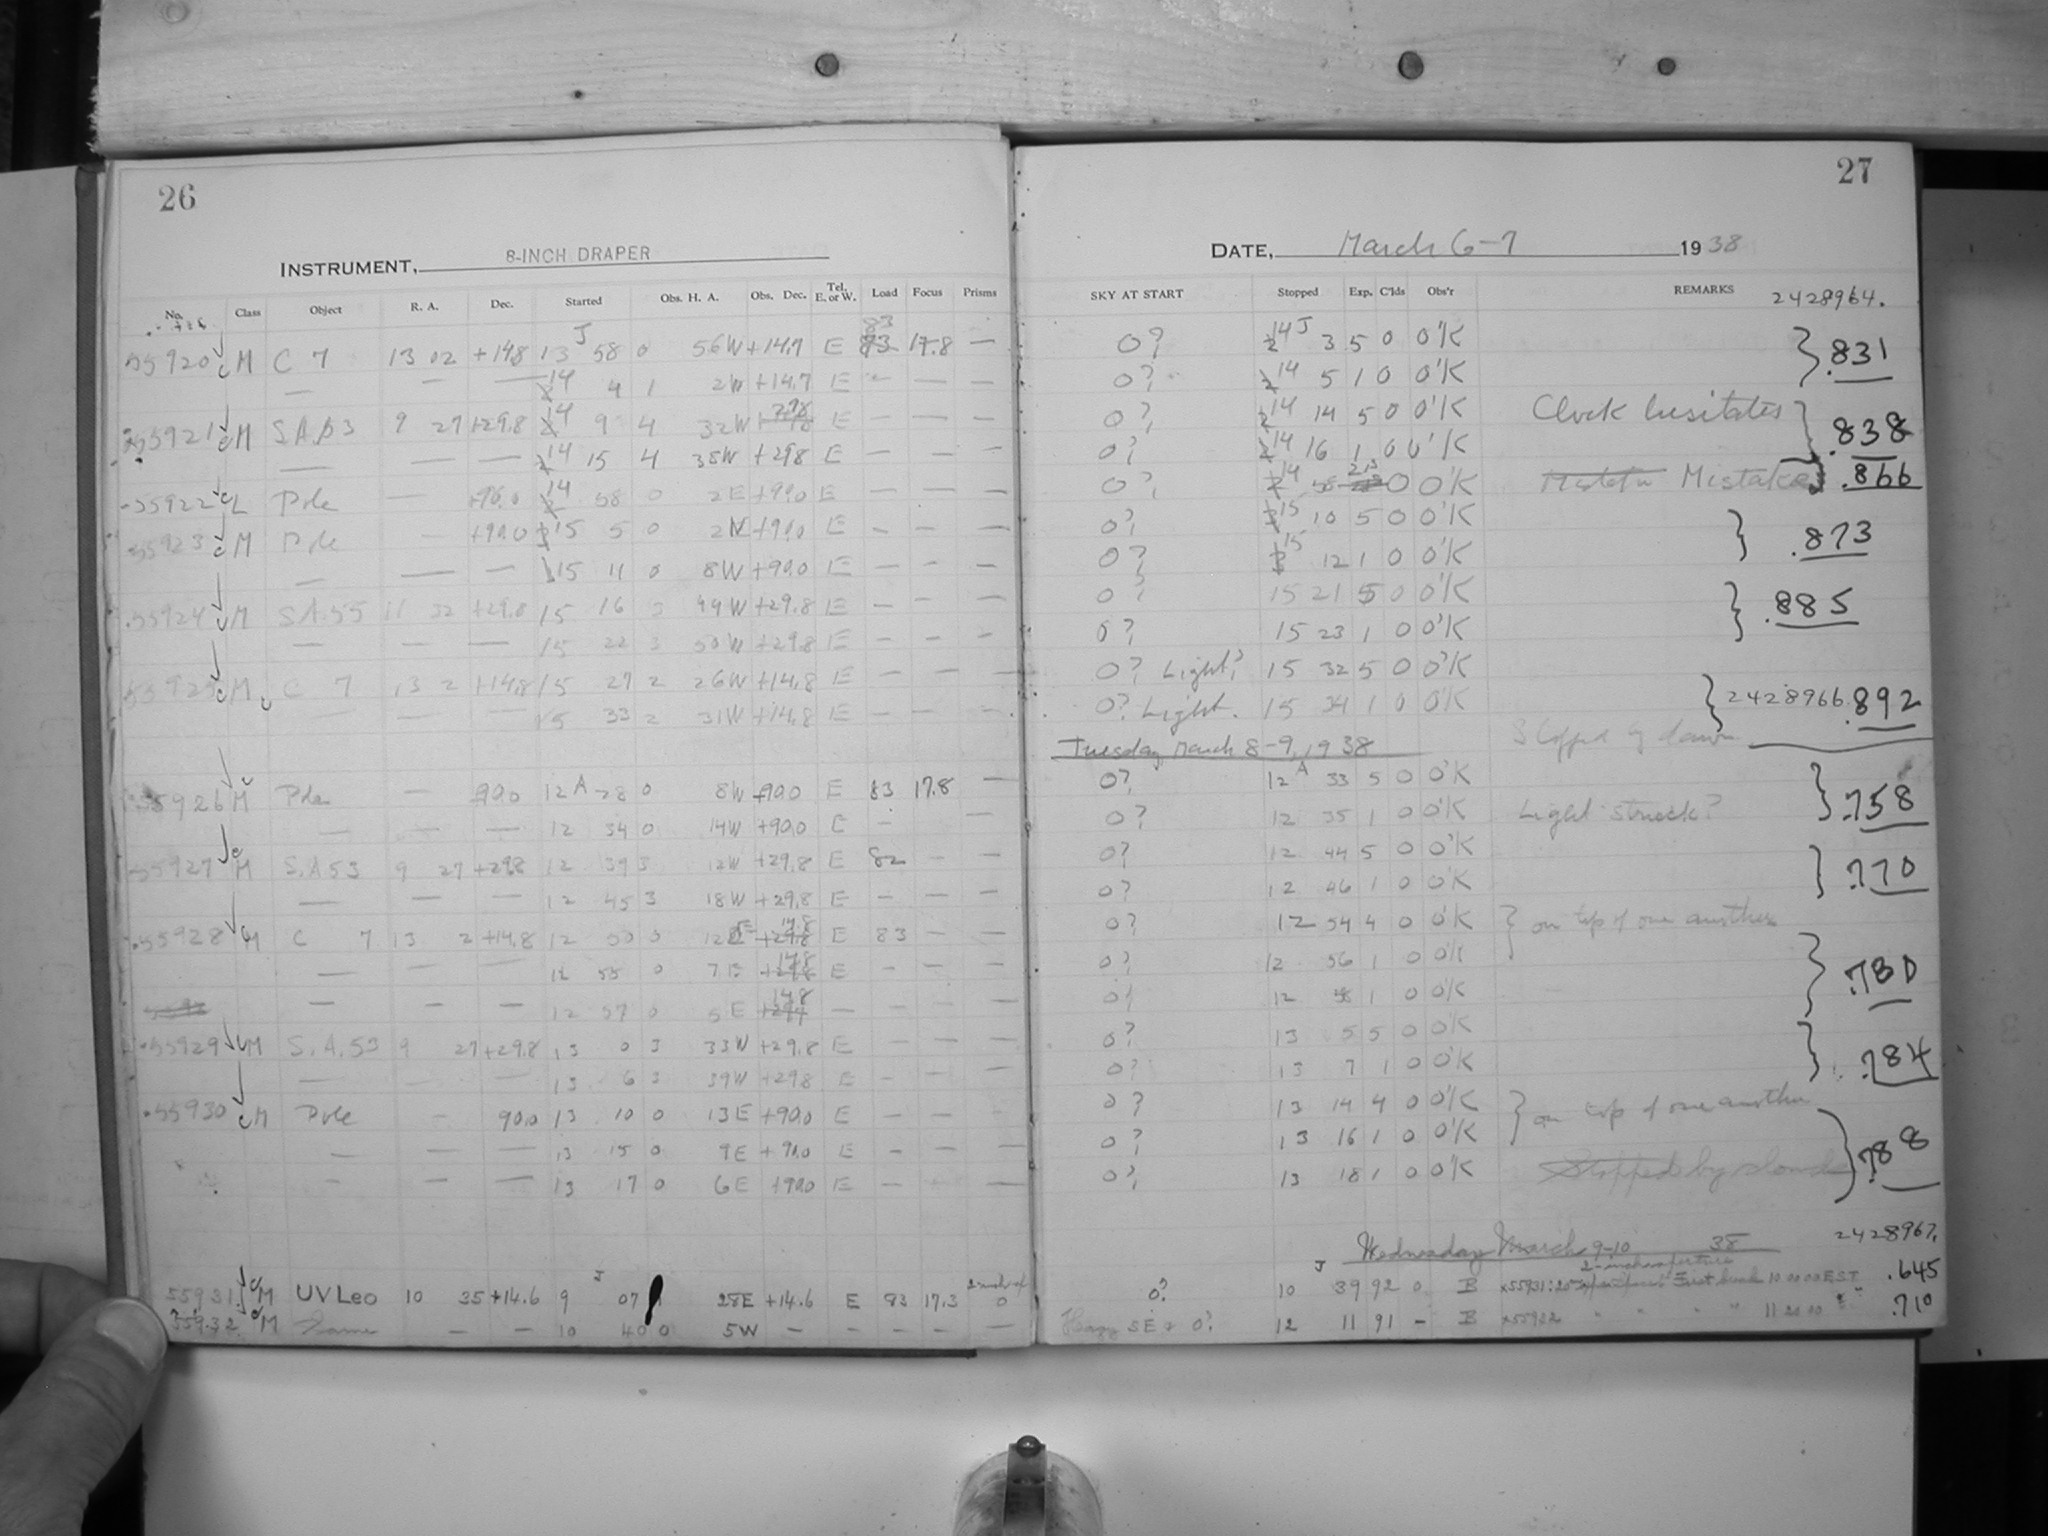 26
INSTRUMENT, 8-INCH DRAPER
No. Class Object R. A. Dec. Started Obs. H. A. Obs. Dec. Tel. E. or W. Load Focus Prisms
55920 M C 7 13 02 +14.8 13 J 58 0 56W +14.7 E 83 17.8 —
— — — 14 4 1 2W +14.7 E — — —
55921 M S.A.53 9 27 +29.8 14 9 4 32W +29.8 E — — —
— — — 14 15 4 38W +29.8 E — — —
55922 L Pole — +90.0 14 58 0 2E +90.0 E — — —
55923 M Pole — +90.0 15 5 0 2W +90.0 E — — —
— — — 15 11 0 8W +90.0 E — — —
55924 M S.A.55 11 32 +29.8 15 16 3 44W +29.8 E — — —
— — — 15 22 3 50W +29.8 E — — —
55925 M C 7 13 2 +14.8 15 27 2 26W +14.8 E — — —
— — — 15 33 2 31W +14.8 E — — —
55926 M Pole — 90.0 12 A 28 0 8W +90.0 E 83 17.8 —
— — — 12 34 0 14W +90.0 E — —
55927 M S.A.53 9 27 +29.8 12 39 3 12W +29.8 E 82 — —
— — — 12 45 3 18W +29.8 E — — —
55928 M C 7 13 2 +14.8 12 50 3 12E 14.8 E 83 — —
— — — 12 55 0 7E 14.8 E — — —
— — — 12 57 0 5E 14.8 — — — —
55929 M S.A.53 9 27 +29.8 13 0 3 33W +29.8 E — — —
— — — 13 6 3 39W +29.8 E — — —
55930 M Pole — 90.0 13 10 0 13E +90.0 E — — —
— — — 13 15 0 9E +90.0 E — — —
— — — 13 17 0 6E +90.0 E — — —
55931 M UV Leo 10 35 +14.6 9 J 07 28E +14.6 E 83 17.3 0
55932 M Same — — 10 40 0 5W — — — — —
27
DATE, March 6-7 1938
SKY AT START Stopped Exp. C'lds Obs'r REMARKS 2428964.
0? 14 J 3 5 0 O'K .831
0? 14 5 1 0 O'K
0? 14 14 5 0 O'K Clock hesitates .838
0? 14 16 1 0 O'K
0? 14 58 0 O'K Mistake .866
0? 15 10 5 0 O'K .873
0? 15 12 1 0 O'K
0? 15 21 5 0 O'K .885
0? 15 23 1 0 O'K
0? Light? 15 32 5 0 O'K
0? Light. 15 34 1 0 O'K 2428966.892
Stopped by dawn
Tuesday March 8-9, 1938
0? 12 A 33 5 0 O'K .758
0? 12 35 1 0 O'K Light struck?
0? 12 44 5 0 O'K .770
0? 12 46 1 0 O'K
0? 12 54 4 0 O'K on top of one another
0? 12 56 1 0 O'K .780
0? 12 58 1 0 O'K
0? 13 5 5 0 O'K .784
0? 13 7 1 0 O'K
0? 13 14 4 0 O'K on top of one another
0? 13 16 1 0 O'K .788
0? 13 18 1 0 O'K Stopped by clouds
Wednesday March 9-10 38 2428967.
2-inch aperture
0? 10 J 39 92 0 B .645
Hazy SE 0? 12 11 91 — B .710